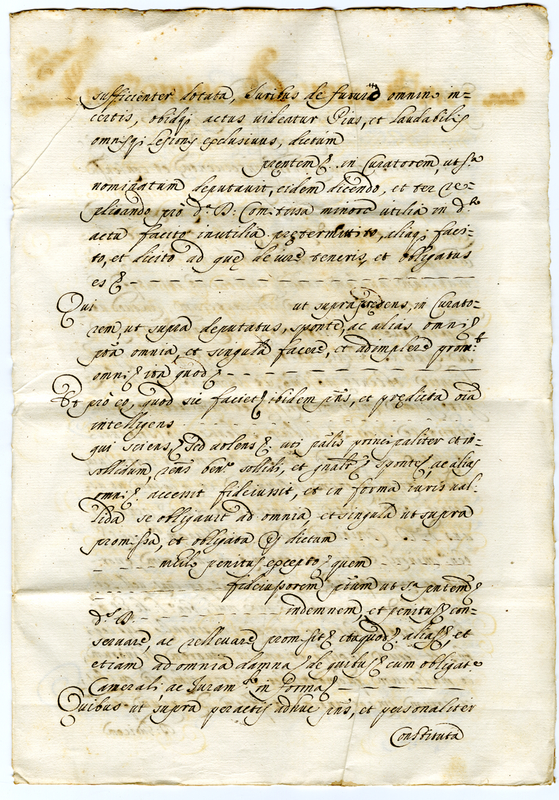 sufficienter dotata, Iuribus de futuro omnino in=
certis, obidqȝ actus uideatur Pius, et laudabilis
omnisqȝ lesionis exclusiuus, dictum
pñtem in Curatorem, ut sᵃ
nominatum deputauit, eidem dicendo, et ter re=
plicando pro dᵃ D: Comitissa minore utilia in dᵒ
actu facito inutilia prętermittito, aliaqȝ faci=
to, et dicito ad quę de iure teneris, et obligatus
es
Qui ut supra pñdens, in Curato=
rem, ut supra deputatus, sponte, ac alias omni
pñta omnia, et singula facere, et adimplere promᵗ
omni ita quod
Et pro eo, quod sic faciet ibidem pñs, et prędicta oīa
intelligens
qui sciens sed uolens uti pñlis principaliter et in=
sollidum, sollidi, et sponte ac alias
omni accessit fideiussit, et in forma iuris ual=
lida se obligauit ad omnia, et singula ut supra
promissa, et obligata dictum
penitus excepto quem
fideiussorem pñtum ut sᵃ pñtem
dᵃ D indemnem, et penitus con=
seruare, ac relleuare promisit itaquod alias et
etiam ad omnia damna de quibus cum obligatᵉ
Camerali ac Iuramᵗᵒ in forma
Quibus ut supra peractis adhuc pñs, et personaliter
Constituta